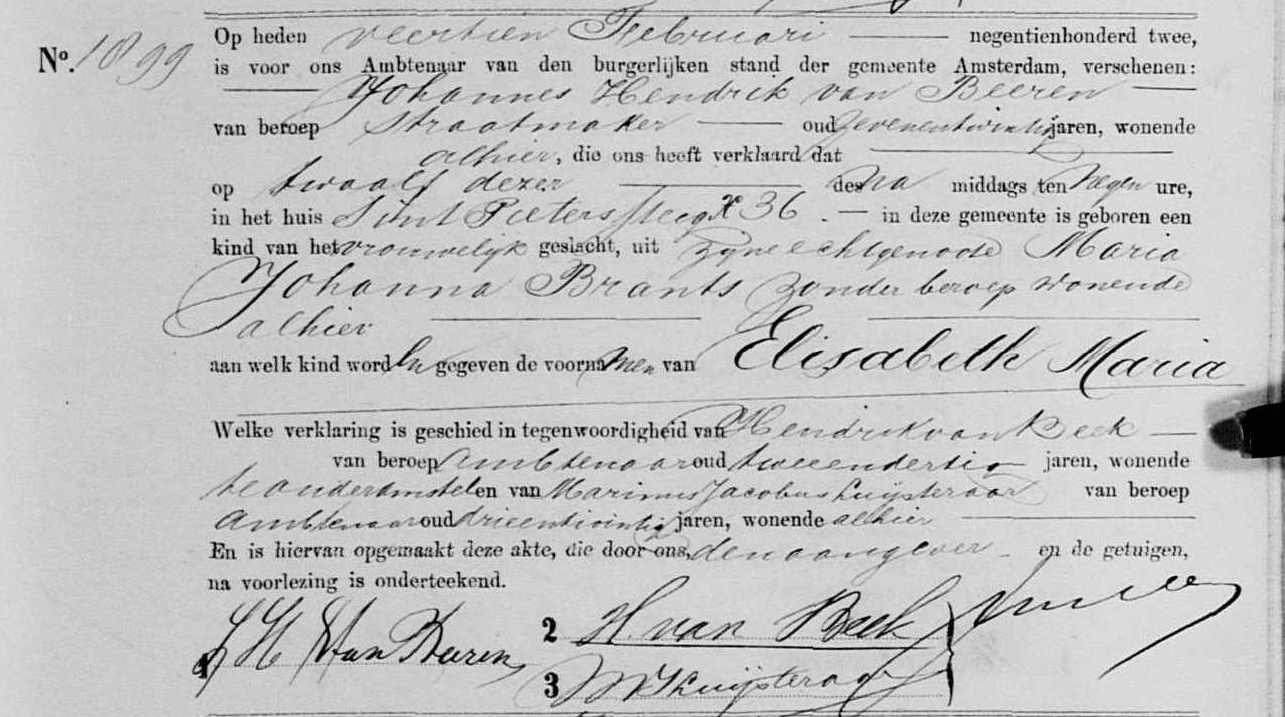 Nº. 1899
Op heden veertien Februari negentienhonderd twee,
is voor ons Ambtenaar van den burgerlijken stand der gemeente Amsterdam, verschenen:
Johannes Hendrik van Beeren
van beroep Straatmaker oud zevenentwintig jaren, wonende
alhier, die ons heeft verklaard dat
op twaalf dezer des na middags ten negen ure,
in het huis Sint Pieterssteeg 36. in deze gemeente is geboren een
kind van het vrouwelijk geslacht, uit zyne echtgenoote Maria
Johanna Brants zonder beroep wonende
alhier
aan welk kind worden gegeven de voornamen van Elisabeth Maria
Welke verklaring is geschied in tegenwoordigheid van Hendrik van Beek
van beroep ambtenaar oud tweeendertig jaren, wonende
te ouderamstel en van Marinus Jacobus Luijsteraar van beroep
Ambtenaar oud drieentwintig jaren, wonende alhier
En is hiervan opgemaakt deze akte, die door ons, den aangever en de getuigen,
na voorlezing is onderteekend.
J H Van Beeren
2 H. van Beek
3